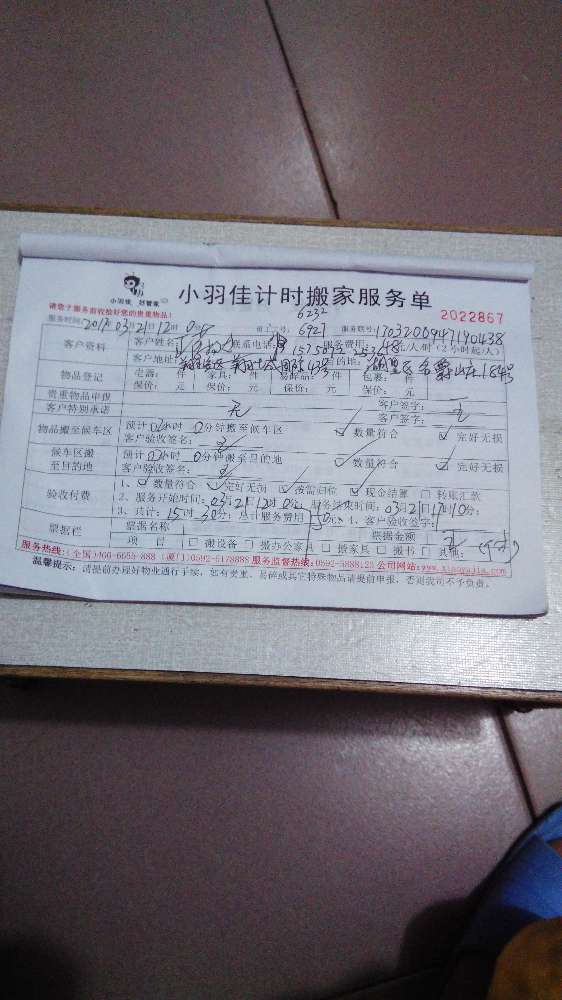 小羽佳 好管家
小羽佳计时搬家服务单
请您于服务前收拾好您的贵重物品!
6232
2022867
服务时间: 2017年03月21日12时0分 员工工号: 6927 服务账号: 1703200947190438
客户资料 客户姓名: 联系电话: 服务费用: 48元/人/时(2小时起/人)
客户地址: 目的地: 湖里区 山庄184号
物品登记 电器: 件 家具: 件 易碎品: 件 包裹: 件
保价: 元 保价: 元 保价: 元 保价: 元
贵重物品申报 客户签字:
客户特别承诺 无 客户签字: 无
物品搬至候车区 预计0小时 0分钟搬至候车区 ☑ 数量符合 ☑ 完好无损
客户验收签名: 无
候车区搬至目的地 预计0小时 0分钟搬至目的地 ☑ 数量符合 ☑ 完好无损
客户验收签名: 无
验收付费 1、☑ 数量符合 ☑ 完好无损 ☑ 按需归位 ☑ 现金结算 □ 转账汇款
2、服务开始时间: 03月21日12时0分; 服务结束时间: 03月21日17时10分;
3、共计: 15时30分; 总计服务费用 元 1、客户验收签字:
票据栏 票据名称 票据金额 无
项 目 □ 搬设备 □ 搬办公家具 □ 搬家具 □ 搬书 □ 其他:
服务热线:(全国)400-6655-888 (厦门)0592-5178888 服务监督热线:0592-5888123 公司网站:www.xiaoyujia.com
温馨提示: 请提前办理好物业通行手续, 如有贵重、易碎或其它特殊物品请提前申报, 否则我司不予负责。